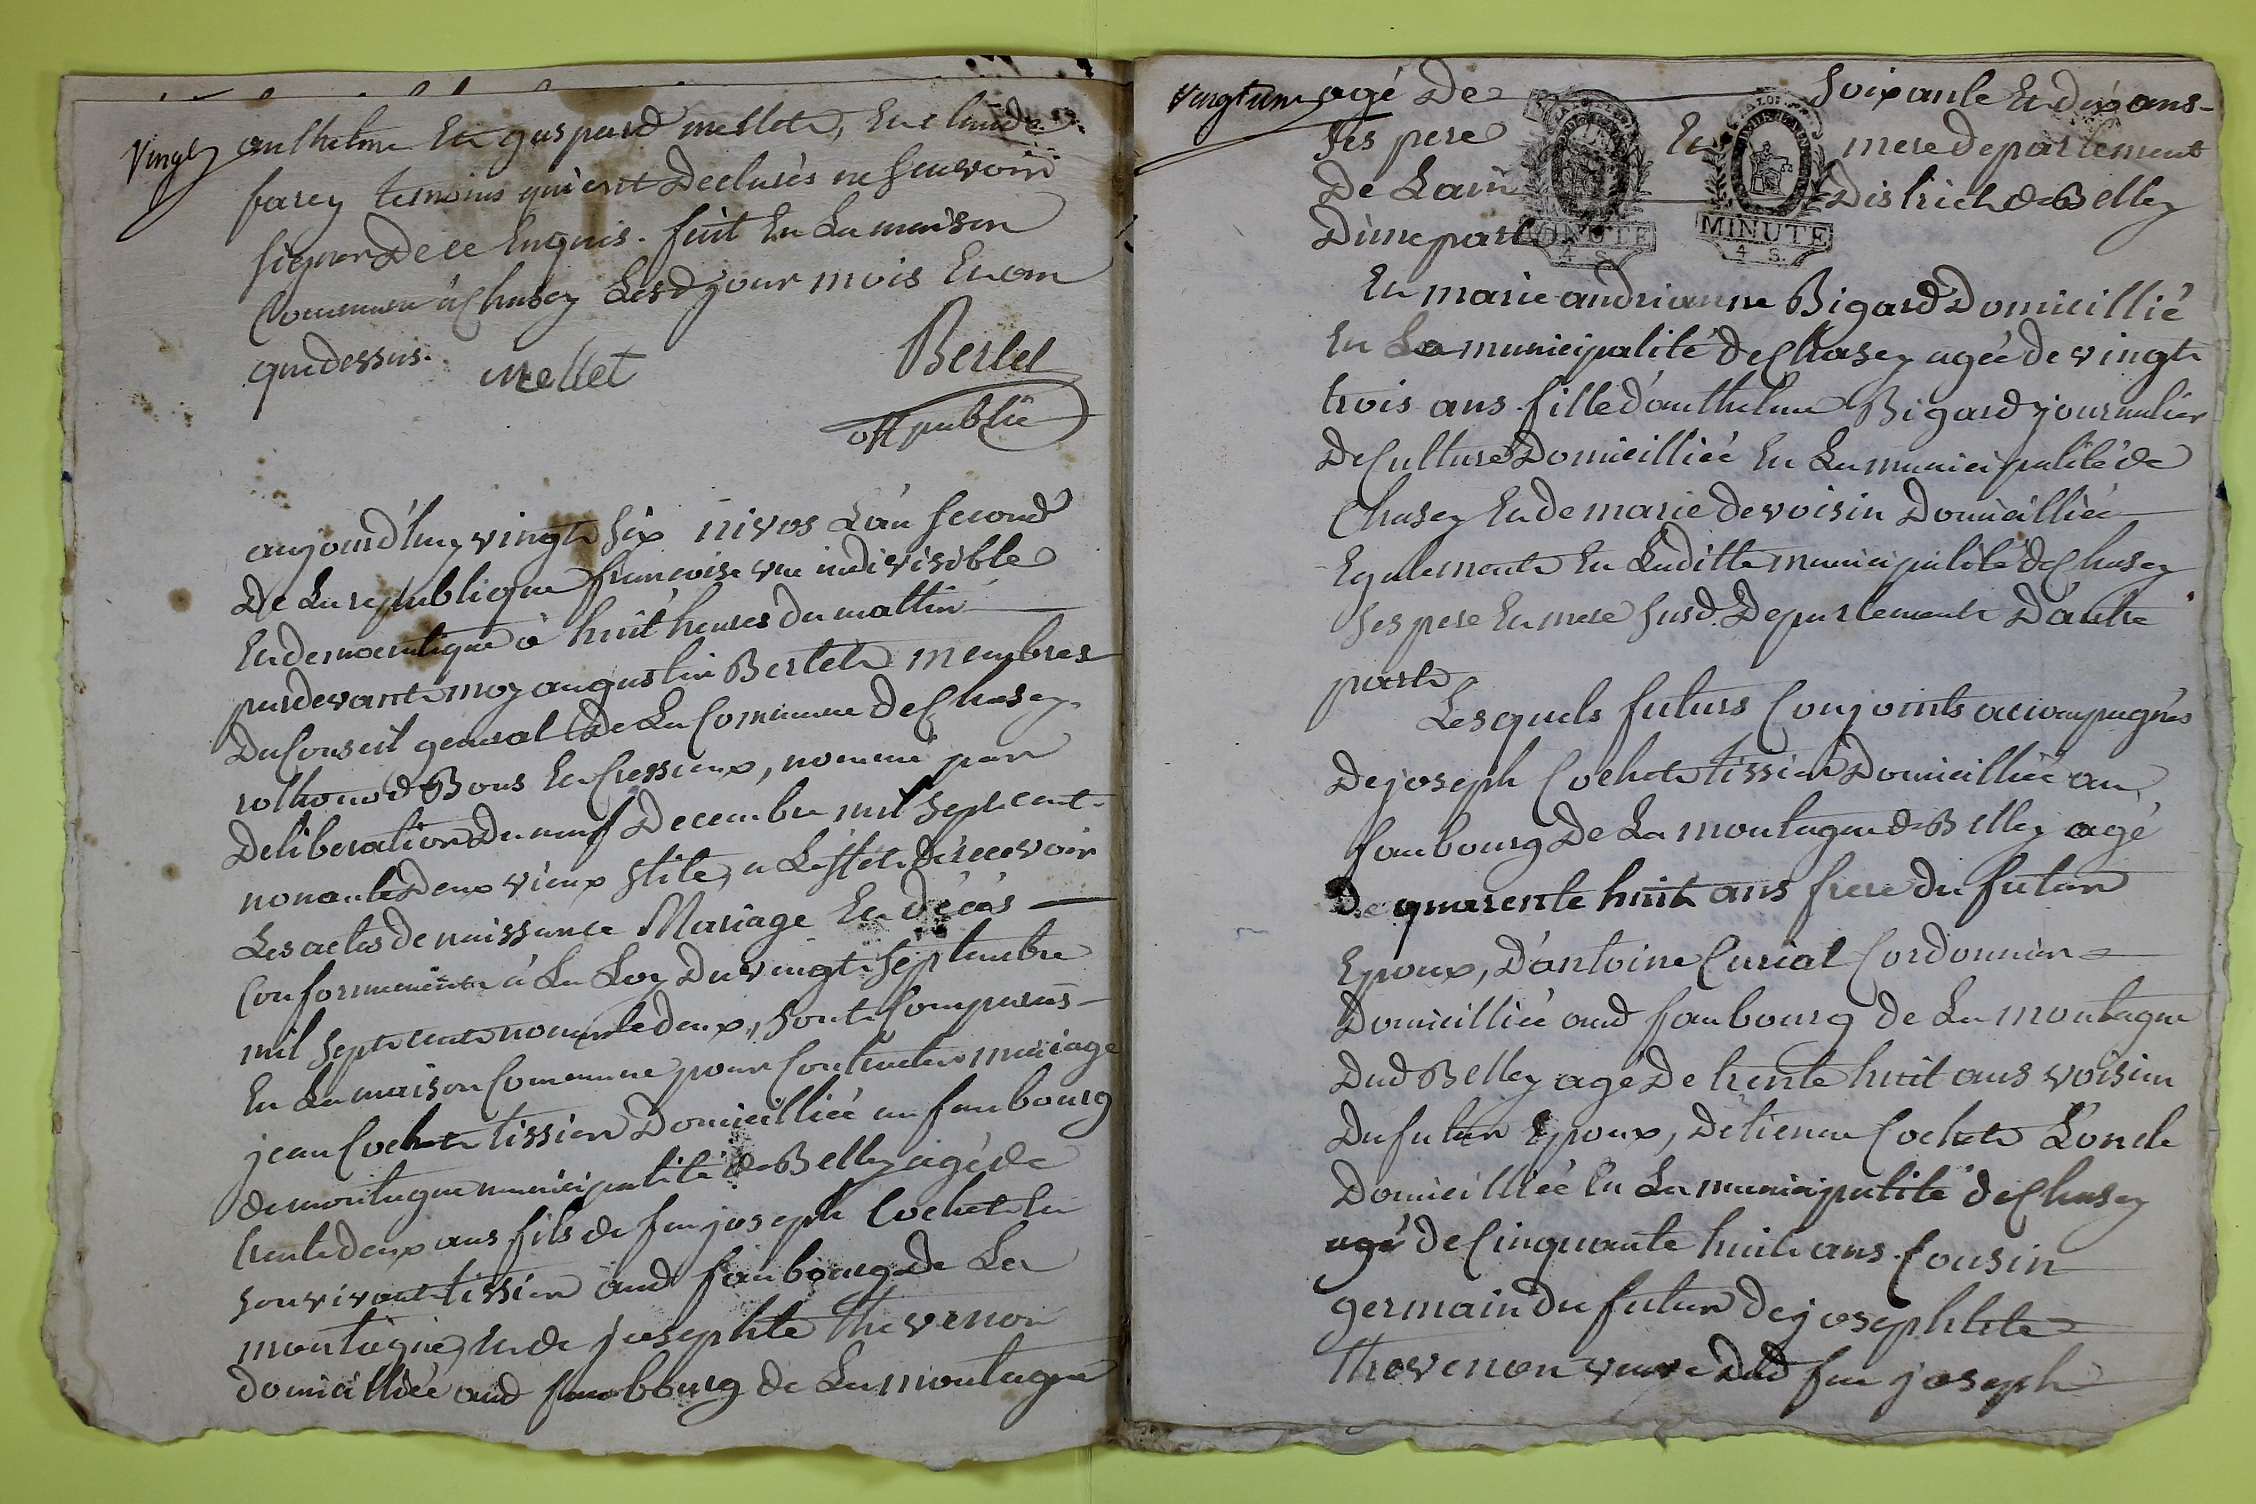 Vingt
anthelme Et gaspard mellet, Et claude
farcy temoins qui ont Declarés ne scavoir
signer De ce Enquis. fait En La maison
Commune à Chasey Lesd jour mois Et an
que dessus.
Mellet
Berlet
off publie
aujourd'huy vingt six nivos L'an second
De La republique francoise une indivisible
Et democratique à huit heures du mattin
pardevant moy augustin Berlet membres
Du Conseil general De La Commune de Chasey
rothonod Bons Et Cressieux, nommé par
Deliberation Du neuf Decembre mil sept cent
nonante Deux vieux stile, a L'effet de recevoir
Les actes de naissance Mariage Et décés
Conformement à La Loy Du vingt septembre
mil sept cent nonante deux, sont comparus
En La maison Commune pour Contracter mariage
jean Cochet tissier Domicillié au faubourg
de montagne municipalité de Belley agé de
trente deux ans fils de feu joseph Cochet En
son vivant tissier aud faubourg De La
montagne, Et de josephte Thevenon
domicilliée aud faubourg de La montagne
Vingt une
agé De soixante Et dix ans
ses pere Et mere departement
De Lain District de Belley
D'une part
MINUTE
4 S.
MINUTE
4 S.
Et marie andrianne Bigard Domicillié
En La municipalité de Chasey agée de vingt
trois ans fille d'anthelme Bigard journalier
De Culture Domicilliée En La municipalité de
Chasey Et de marie devoisin Domicilliée
Egalement En Laditte municipalité de Chasey
ses pere Et mere susd. Departement D'autre
part.
Lesquels futurs Conjoints accompagnés
De joseph Cochet tissier Domicillié au
faubourg De La montagne de Belley agé
De quarente huit ans frere du futur
Epoux, D'antoine Curial Cordonnier
Domicillié aud faubourg de La montagne
Dud Belley agé De trente huit ans voisin
Du futur Epoux, De tienne Cochet L'oncle
Domicillié En La municipalité de Chasey
agé de Cinquante huit ans Cousin
germain du futur De josephte
Thevenon veuve Dud feu joseph